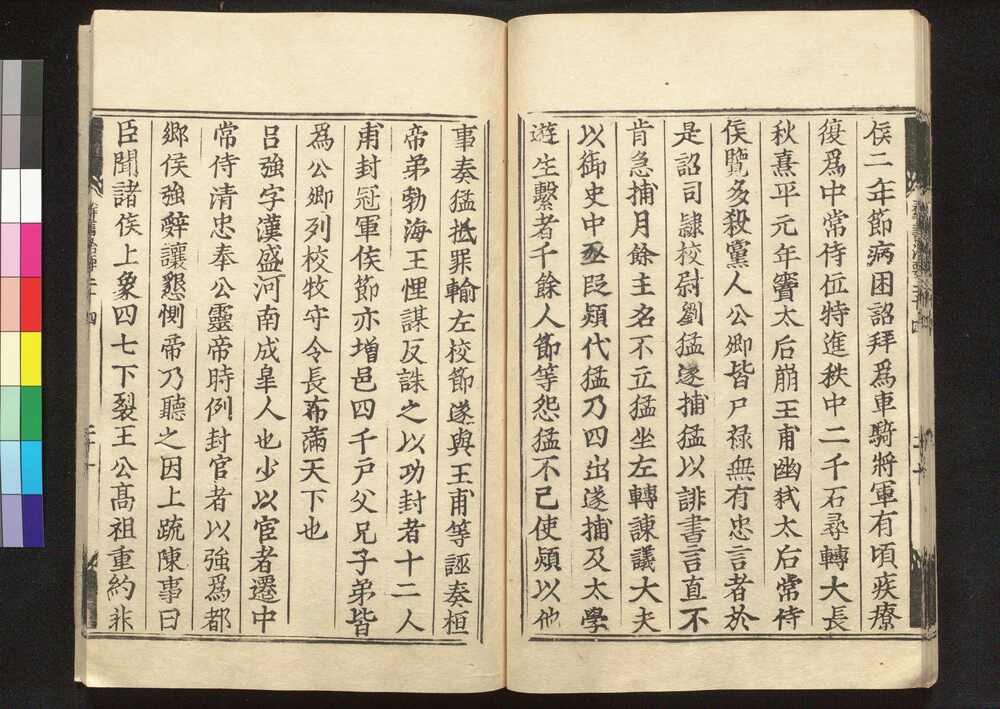 侯二年節病困詔拜爲車騎將軍有頃疾瘳
復爲中常侍位特進秩中二千石尋轉大長
秋熹平元年竇太后崩王甫幽弑太后常侍
侯覽多殺黨人公卿皆尸禄無有忠言者於
是詔司隷校尉劉猛遂捕猛以誹書言直不
肯急捕月餘主名不立猛坐左轉諫議大夫
以御史中丞段熲代猛乃四出遂捕及太學
遊生繫者千餘人節等怨猛不已使熲以他
事奏猛抵罪輸左校節遂與王甫等誣奏桓
帝弟勃海王悝謀反誅之以功封者十二人
甫封冠軍侯節亦増邑四千戸父兄子弟皆
爲公卿列校牧守令長布滿天下也
吕強字漢盛河南成皐人也少以宦者遷中
常侍清忠奉公靈帝時例封官者以強爲都
郷侯強辭讓懇惻帝乃聽之因上疏陳事曰
臣聞諸侯上象四七下裂王公髙祖重約非